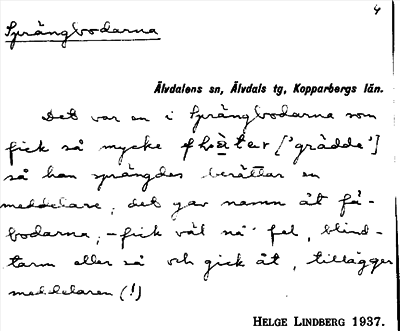 4
Sprängbodarna
Älvdalens sn, Älvdals tg, Kopparbergs län.
Det var en i Sprängbodarna som
fick så mycke ['grädde']
så han sprängdes berättar en
meddelare, det gav namn åt fä-
bodarna, - fick väl nå' fel, blind-
tarm eller så och gick åt, tillägger
meddelaren (!)
HELGE LINDBERG 1937.